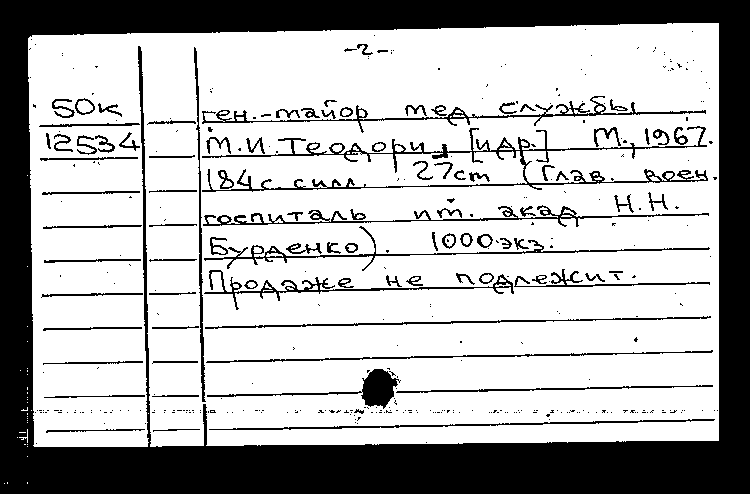 -2-
50к ген.-майор мед. службы
12534 М.И. Теодори, [и др.] М., 1967.
184 с. силл. 27см (Глав. воен.
госпиталь им. акад Н.Н.
Бурденко). 1000 экз.
Продаже не подлежит.